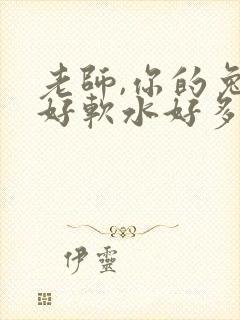 老師,你的兔
好軟水好多
伊靈